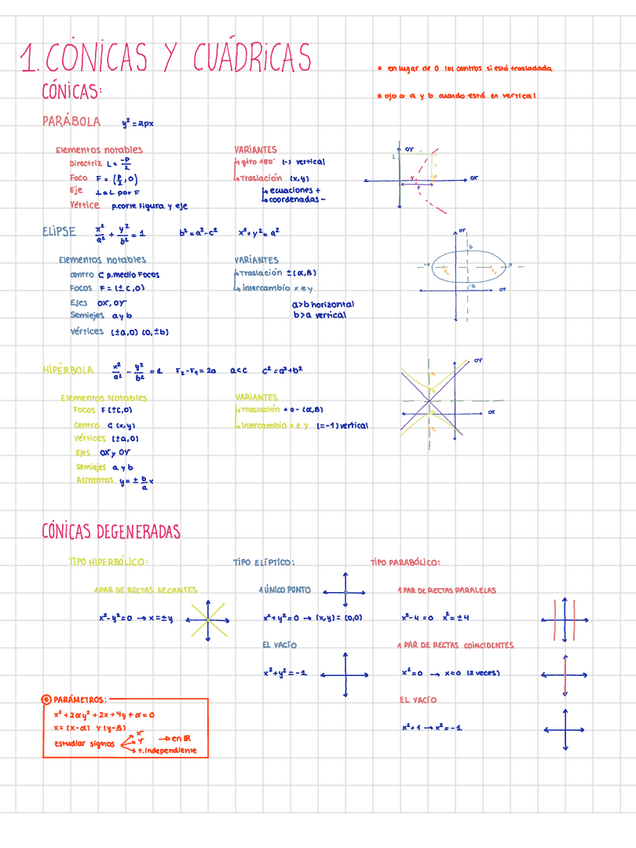 1. CÓNICAS Y CUÁDRICAS
* en lugar de 0 los centros si está trasladada
CÓNICAS:
* ojo a a y b cuando está en vertical
PARÁBOLA y²=2px
Elementos notables
Directriz L = -p/2
Foco F = (p/2, 0)
Eje ⊥ a L por F
Vértice p.corte figura y eje
VARIANTES
↳ giro 180° (-) vertical
↳ Traslación (x,y)
↳ ecuaciones +
↳ coordenadas -
L
OY
OX
V
F
ELIPSE x²/a² + y²/b² = 1 b²=a²-c² x²+y²=a²
Elementos notables
centro C p.medio Focos
Focos F = (±c,0)
Ejes OX, OY
Semiejes a y b
Vértices (±a,0) (0,±b)
VARIANTES
↳ Traslación ±(α,β)
↳ Intercambio x e y
a>b horizontal
b>a vertical
OY
b
-a
a
-b
OX
HIPÉRBOLA x²/a² - y²/b² = 1 F₂-F₁=2a a<c c²=a²+b²
Elementos Notables
Focos F(±c,0)
Centro C (x,y)
Vértices (±a,0)
Ejes OX y OY
Semiejes a y b
Asíntotas y = ± b/a x
VARIANTES
↳ Traslación + o - (α,β)
↳ Intercambio x e y (=-1) vertical
OY
OX
CÓNICAS DEGENERADAS
TIPO HIPERBÓLICO:
1 PAR DE RECTAS SECANTES
x²-y²=0 → x=±y
TIPO ELÍPTICO:
1 ÚNICO PUNTO
x²+y²=0 → (x,y)=(0,0)
EL VACÍO
x²+y²=-1
TIPO PARABÓLICO:
1 PAR DE RECTAS PARALELAS
x²-4=0 x²=±4
1 PAR DE RECTAS COINCIDENTES
x²=0 → x=0 (2 veces)
EL VACÍO
x²+1 → x²=-1
PARÁMETROS:
x²+2αy²+2x+4y+α=0
x=(x-α) Y (y-β)
Estudiar signos
X
Y
→ en ℝ
t.independiente